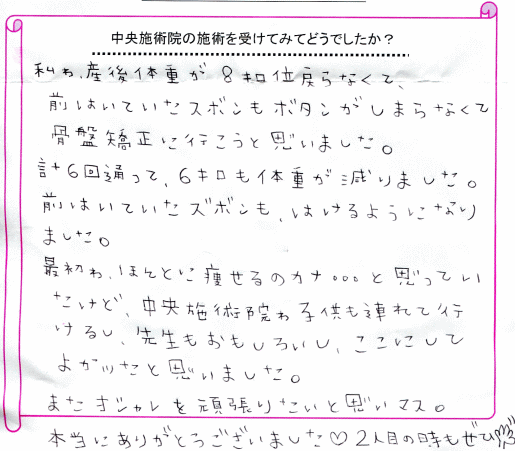 中央施術院の施術を受けてみてどうでしたか？
私わ、産後体重が8キロ位戻らなくて、
前はいていたズボンもボタンがしまらなくて
骨盤矯正に行こうと思いました。
計6回通って、6キロも体重が減りました。
前はいていたズボンも、はけるようになり
ました。
最初わ、ほんとに痩せるのカナ。。。と思ってい
たけど、中央施術院わ子供も連れて行
けるし、先生もおもしろいし、ここにして
よかッたと思いました。
またオシャレを頑張りたいと思いマス。
本当にありがとうございました♡2人目の時もぜひ